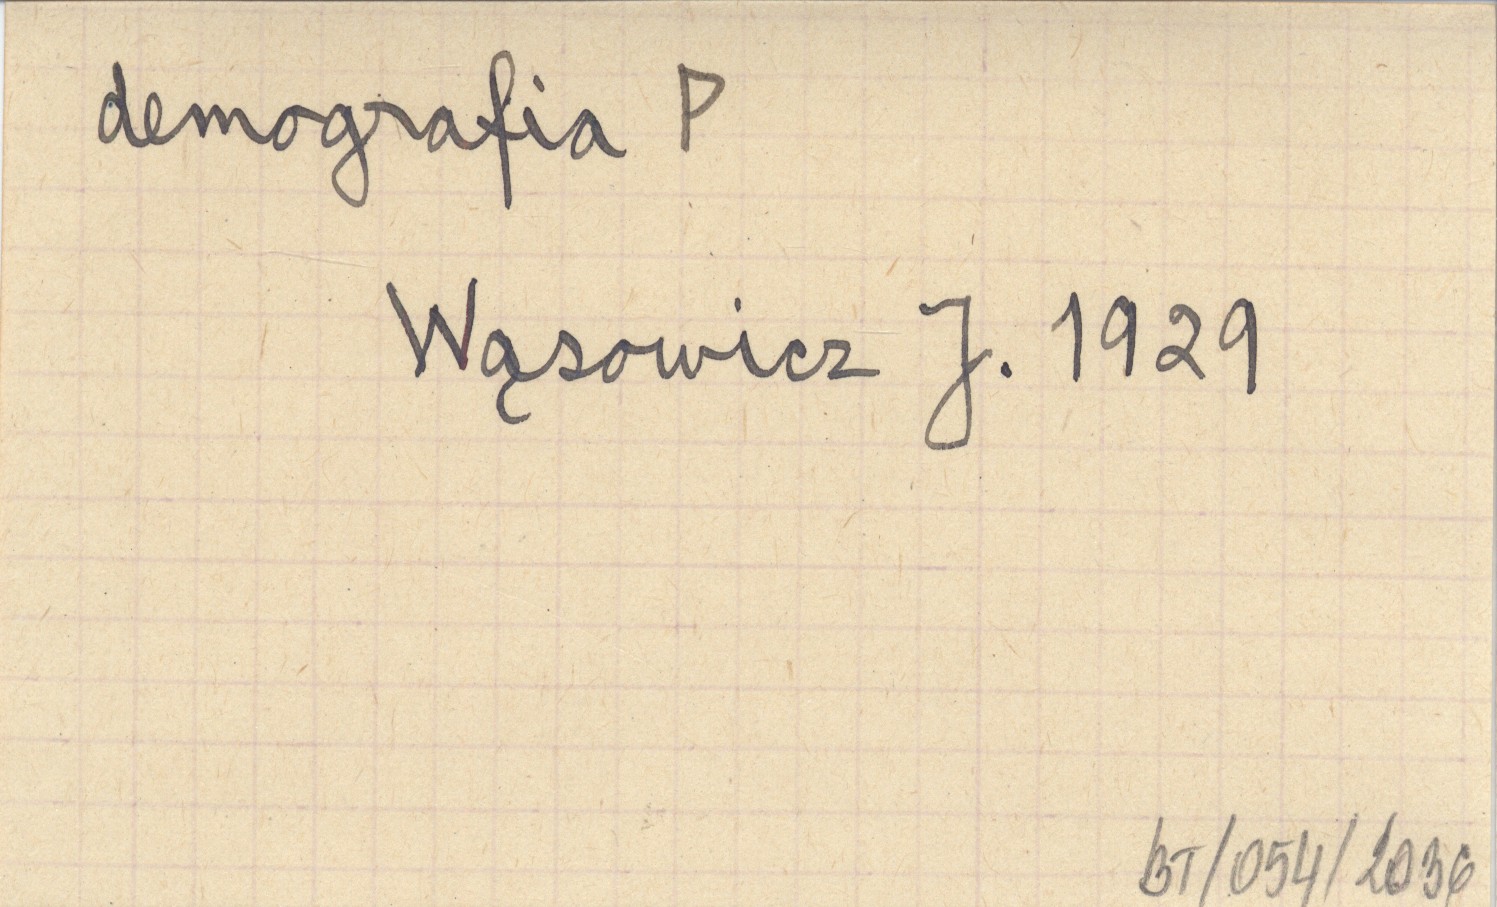 demografia P
Wąsowicz J. 1929
BT/054/2036